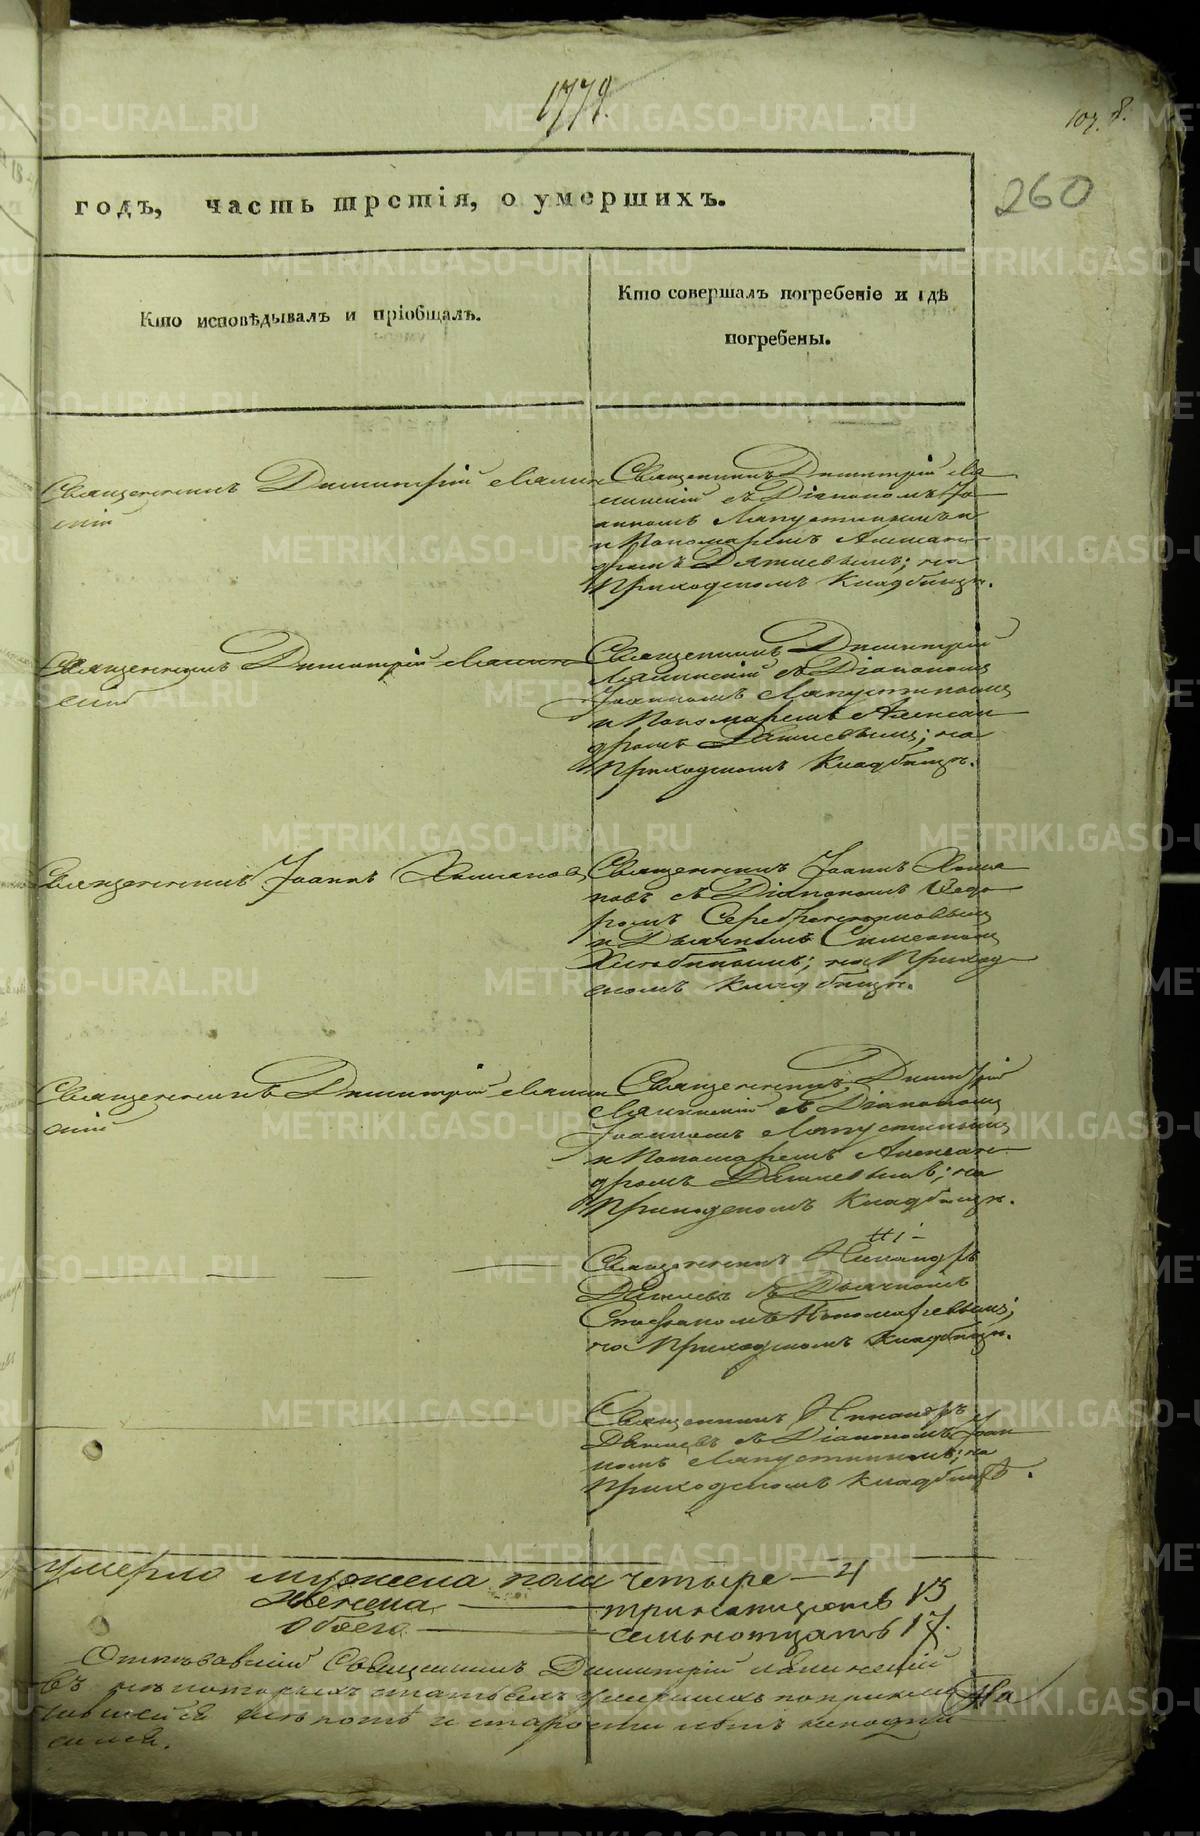 1779.
107. 8.
260
годъ, часть третія, о умершихъ.
Кто исповѣдывалъ и пріобщалъ.
Кто совершалъ погребеніе и гдѣ
погребены.
Священникъ Димитрій Ляпин
скій
Священникъ Димитрій Ля
пинскій съ Діакономъ Іо
анномъ Лапустинымъ
и Пономаремъ Алексан
дромъ Дягилевымъ; на
Приходскомъ Кладбищѣ.
Священникъ Димитрій Ляпин
скій
Священникъ Димитрій
Ляпинскій съ Діакономъ
Іоанномъ Лапустинымъ
и Пономаремъ Алексан
дромъ Дягилевымъ; на
Приходскомъ Кладбищѣ.
Священникъ Іоаннъ
Священникъ Іоаннъ
съ Діакономъ Ѳедо
ромъ Серебрениковымъ
и Дьячкомъ Симеономъ
на Приход
скомъ Кладбищѣ.
Священникъ Димитрій Ляпин
скій
Священникъ Димитрій
Ляпинскій съ Діакономъ
Іоанномъ Лапустинымъ
и Пономаремъ Алексан
дромъ Дягилевымъ; на
Приходскомъ Кладбищѣ.
Священникъ Никандръ
Дягилевъ съ Дьячкомъ
Стефаномъ Пономаревымъ;
на Приходскомъ Кладбищѣ.
Священникъ Никандръ
Дягилевъ съ Діакономъ Іоан
номъ Лапустинымъ; на
Приходскомъ Кладбищѣ.
Умерло мужеска пола четыре — 4
Женска — тринатцать 13
Обоего — семьнотцать 17.
Отпѣвавшій Священникъ Димитрій Ляпинскій
въ нѣкоторыхъ статьяхъ умершихъ по
и старости лѣтъ неподпи
сался.
На
METRIKI.GASO-URAL.RU